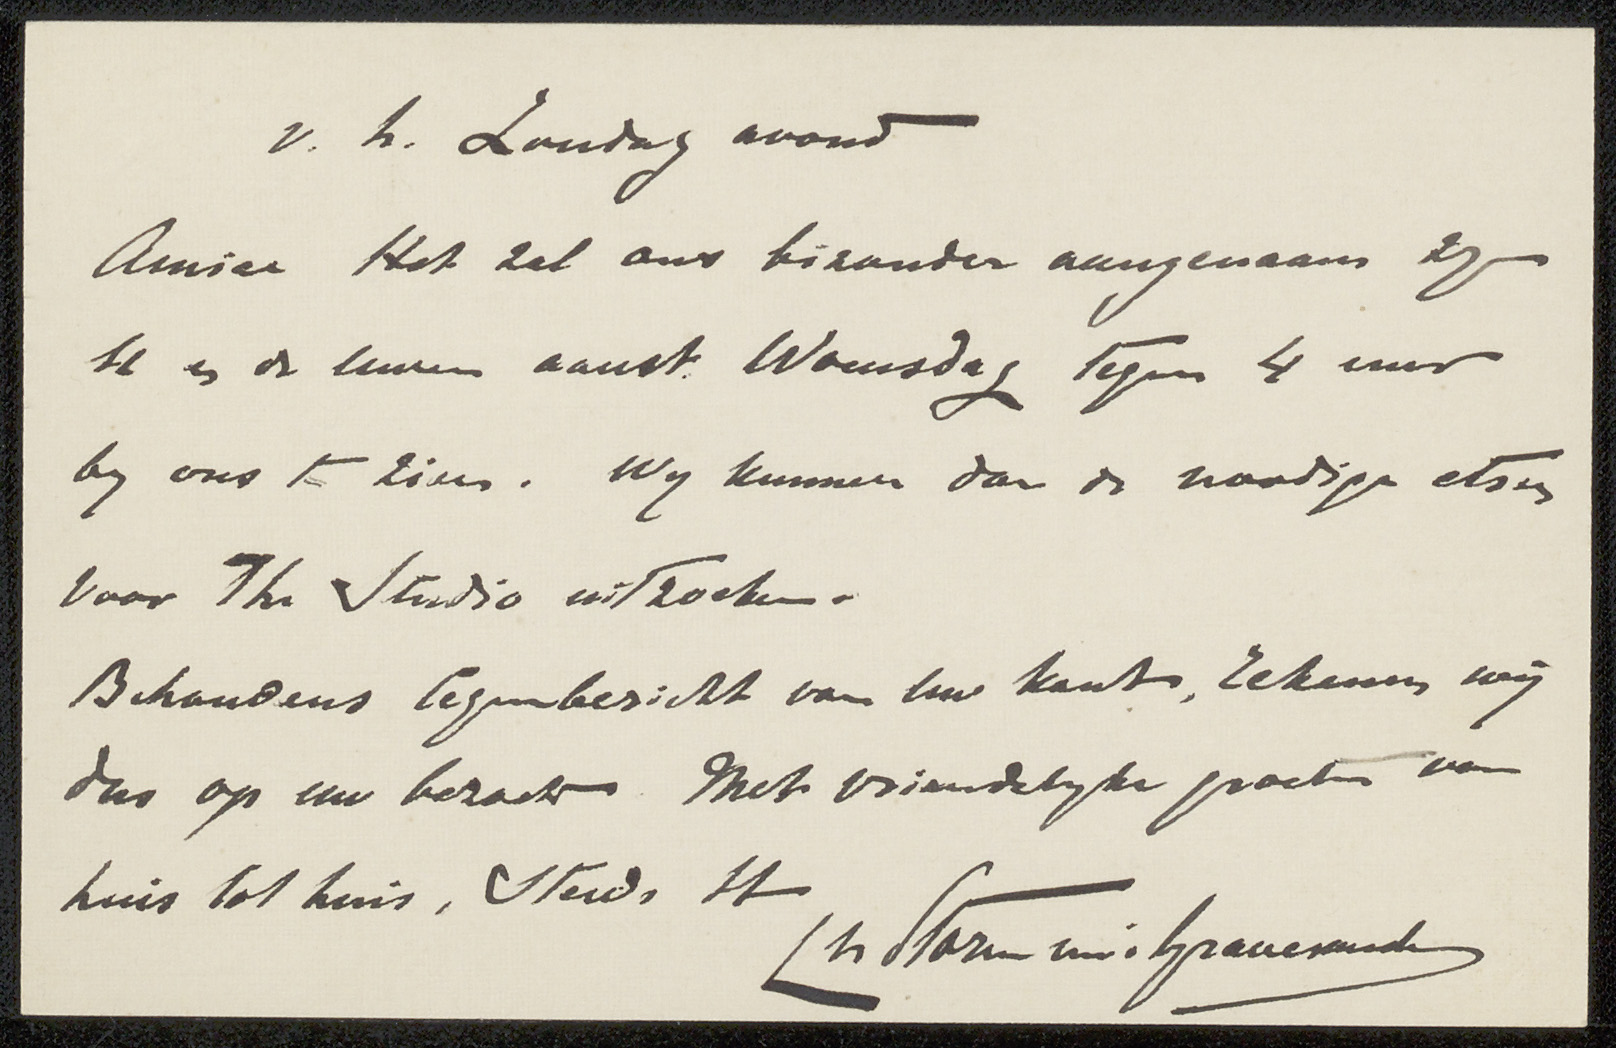 v. h. Zondag avond
Amice Het zal ons bizonder aangenaam zyn
U en de uwen aanst. Woensdag tegen 4 uur
by ons te zien. Wy kunnen dan de noodige etsen
voor The Studio uitzoeken.
Behoudens tegenbericht van uw kant, rekenen wij
dus op uw bezoek Met vriendelyke groeten van
huis tot huis, Steeds Uw
Ch Storm van 's Gravesande